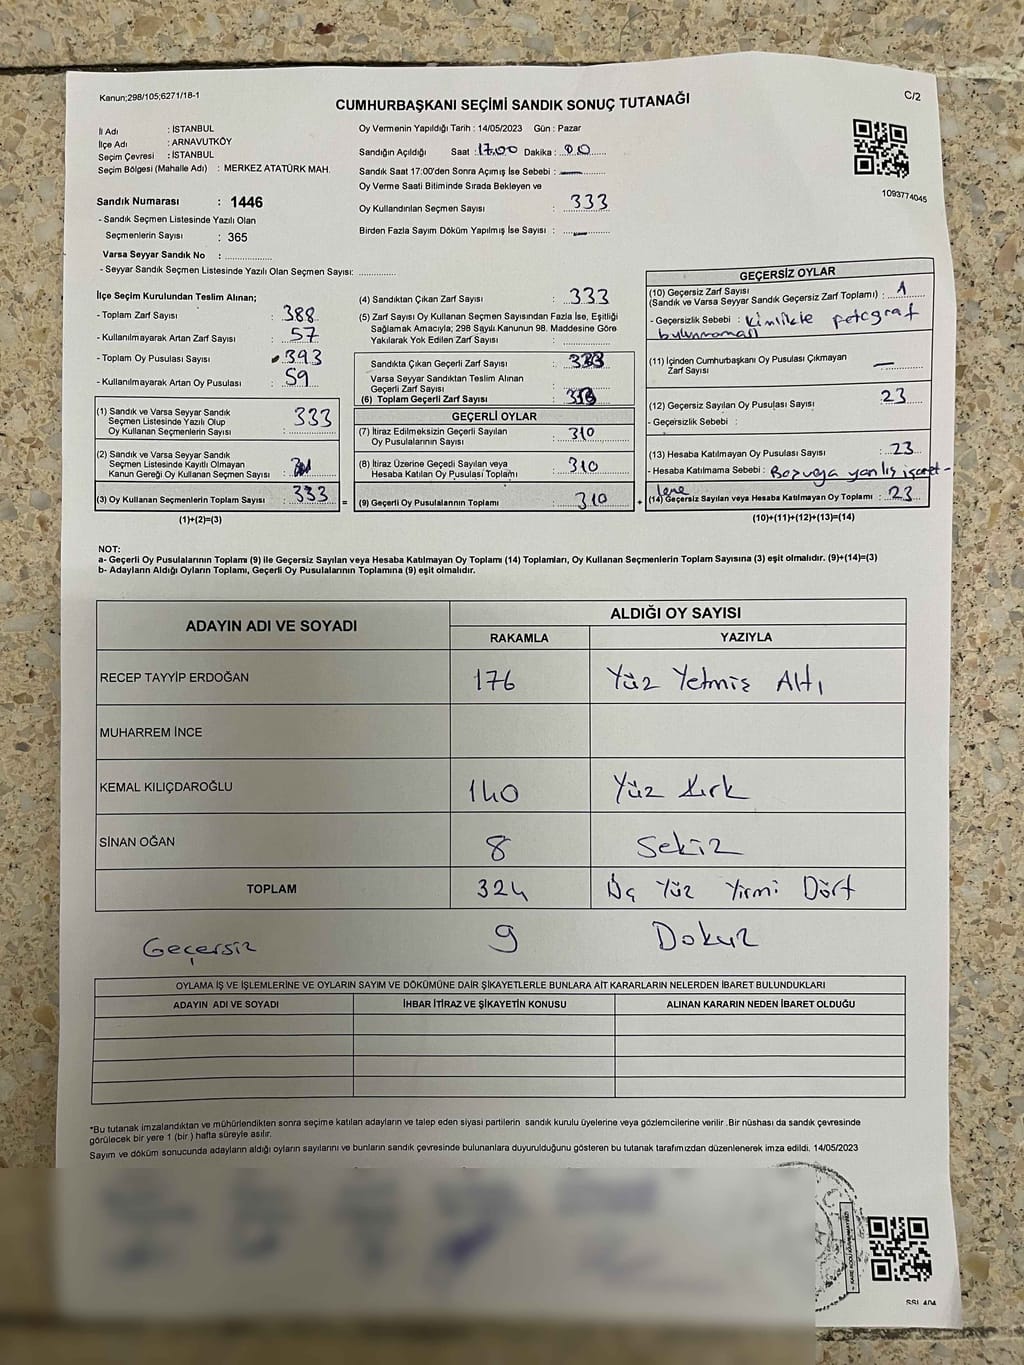 Kanun;298/105;6271/18-1
C/2
CUMHURBAŞKANI SEÇİMİ SANDIK SONUÇ TUTANAĞI
İl Adı : İSTANBUL
İlçe Adı : ARNAVUTKÖY
Seçim Çevresi : İSTANBUL
Seçim Bölgesi (Mahalle Adı) : MERKEZ ATATÜRK MAH.
Sandık Numarası : 1446
- Sandık Seçmen Listesinde Yazılı Olan
Seçmenlerin Sayısı : 365
Varsa Seyyar Sandık No :
- Seyyar Sandık Seçmen Listesinde Yazılı Olan Seçmen Sayısı:
Oy Vermenin Yapıldığı Tarih : 14/05/2023 Gün : Pazar
Sandığın Açıldığı Saat : 17.00 Dakika : 00
Sandık Saat 17:00'den Sonra Açımış İse Sebebi :
Oy Verme Saati Bitiminde Sırada Bekleyen ve
Oy Kullandırılan Seçmen Sayısı : 333
Birden Fazla Sayım Döküm Yapılmış İse Sayısı :
1093774045
İlçe Seçim Kurulundan Teslim Alınan;
- Toplam Zarf Sayısı : 388
- Kullanılmayarak Artan Zarf Sayısı : 57
- Toplam Oy Pusulası Sayısı : 393
- Kullanılmayarak Artan Oy Pusulası : 59
(1) Sandık ve Varsa Seyyar Sandık
Seçmen Listesinde Yazılı Olup
Oy Kullanan Seçmenlerin Sayısı : 333
(2) Sandık ve Varsa Seyyar Sandık
Seçmen Listesinde Kayıtlı Olmayan
Kanun Gereği Oy Kullanan Seçmen Sayısı :
(3) Oy Kullanan Seçmenlerin Toplam Sayısı : 333 =
(1)+(2)=(3)
(4) Sandıktan Çıkan Zarf Sayısı : 333
(5) Zarf Sayısı Oy Kullanan Seçmen Sayısından Fazla İse, Eşitliği
Sağlamak Amacıyla; 298 Sayılı Kanunun 98. Maddesine Göre
Yakılarak Yok Edilen Zarf Sayısı :
Sandıkta Çıkan Geçerli Zarf Sayısı : 333
Varsa Seyyar Sandıktan Teslim Alınan
Geçerli Zarf Sayısı :
(6) Toplam Geçerli Zarf Sayısı :
GEÇERLİ OYLAR
(7) İtiraz Edilmeksizin Geçerli Sayılan
Oy Pusulalarının Sayısı : 310
(8) İtiraz Üzerine Geçedi Sayılan veya
Hesaba Katılan Oy Pusulası Toplamı : 310
(9) Geçerli Oy Pusulalarının Toplamı : 310 +
GEÇERSİZ OYLAR
(10) Geçersiz Zarf Sayısı
(Sandık ve Varsa Seyyar Sandık Geçersiz Zarf Toplamı) : 1
- Geçersizlik Sebebi : Kimlikte fotograf
bulunmaması
(11) İçinden Cumhurbaşkanı Oy Pusulası Çıkmayan
Zarf Sayısı : —
(12) Geçersiz Sayılan Oy Pusulası Sayısı : 23
- Geçersizlik Sebebi :
(13) Hesaba Katılmayan Oy Pusulası Sayısı : 23
- Hesaba Katılmama Sebebi : yanlış işaret-
leme
(14) Geçersiz Sayılan veya Hesaba Katılmayan Oy Toplamı : 23
(10)+(11)+(12)+(13)=(14)
NOT:
a- Geçerli Oy Pusulalarının Toplamı (9) ile Geçersiz Sayılan veya Hesaba Katılmayan Oy Toplamı (14) Toplamları, Oy Kullanan Seçmenlerin Toplam Sayısına (3) eşit olmalıdır. (9)+(14)=(3)
b- Adayların Aldığı Oyların Toplamı, Geçerli Oy Pusulalarının Toplamına (9) eşit olmalıdır.
ADAYIN ADI VE SOYADI
ALDIĞI OY SAYISI
RAKAMLA YAZIYLA
RECEP TAYYİP ERDOĞAN 176 Yüz Yetmiş Altı
MUHARREM İNCE
KEMAL KILIÇDAROĞLU 140 Yüz Kırk
SİNAN OĞAN 8 Sekiz
TOPLAM 324 Üç Yüz Yirmi Dört
Geçersiz 9 Dokuz
OYLAMA İŞ VE İŞLEMLERİNE VE OYLARIN SAYIM VE DÖKÜMÜNE DAİR ŞİKAYETLERLE BUNLARA AİT KARARLARIN NELERDEN İBARET BULUNDUKLARI
ADAYIN ADI VE SOYADI İHBAR İTİRAZ VE ŞİKAYETİN KONUSU ALINAN KARARIN NEDEN İBARET OLDUĞU
*Bu tutanak imzalandıktan ve mühürlendikten sonra seçime katılan adayların ve talep eden siyasi partilerin sandık kurulu üyelerine veya gözlemcilerine verilir .Bir nüshası da sandık çevresinde
görülecek bir yere 1 (bir ) hafta süreyle asılır.
Sayım ve döküm sonucunda adayların aldığı oyların sayılarını ve bunların sandık çevresinde bulunanlara duyurulduğunu gösteren bu tutanak tarafımızdan düzenlenerek imza edildi. 14/05/2023